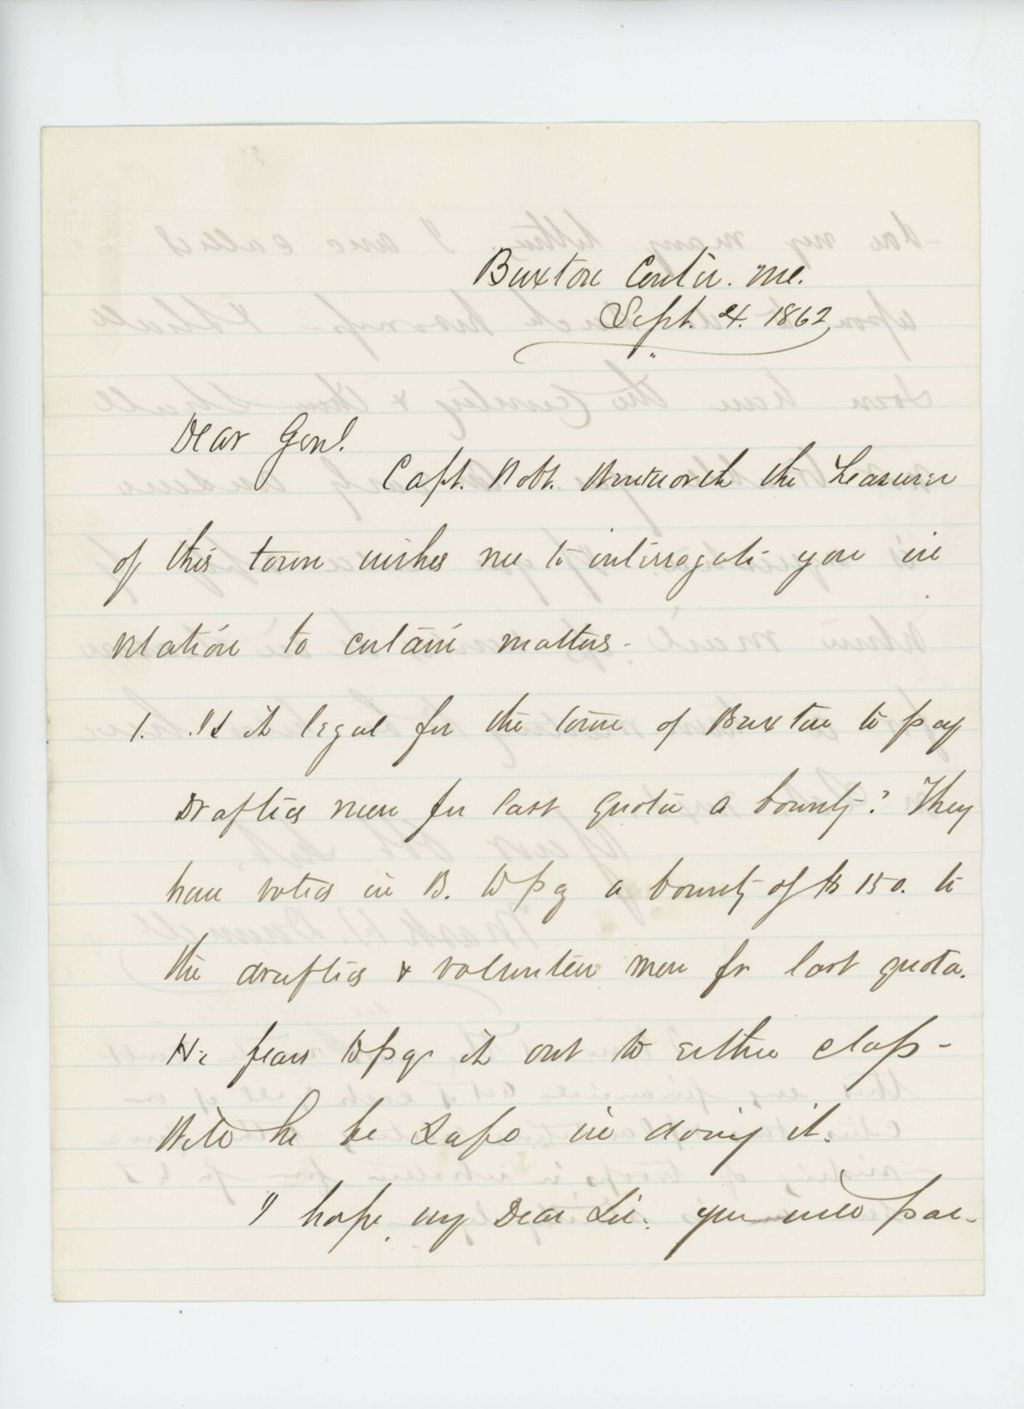 Buxton Center. Me.
Sept. 4. 1862
Dear Genl.
Capt. Robt. Wentworth the Treasurer
of this town wishes me to interrogate you in
relation to certain matters -
1. Is it legal for the town of Buxton to pay
Drafted men for last quota a bounty? They
have voted in B. to pay a bounty of $150. to
the drafted & volunteer men for last quota.
He fears to pay it out to either class -
Will he be safe in doing it.
I hope, my Dear Sir. you will par-